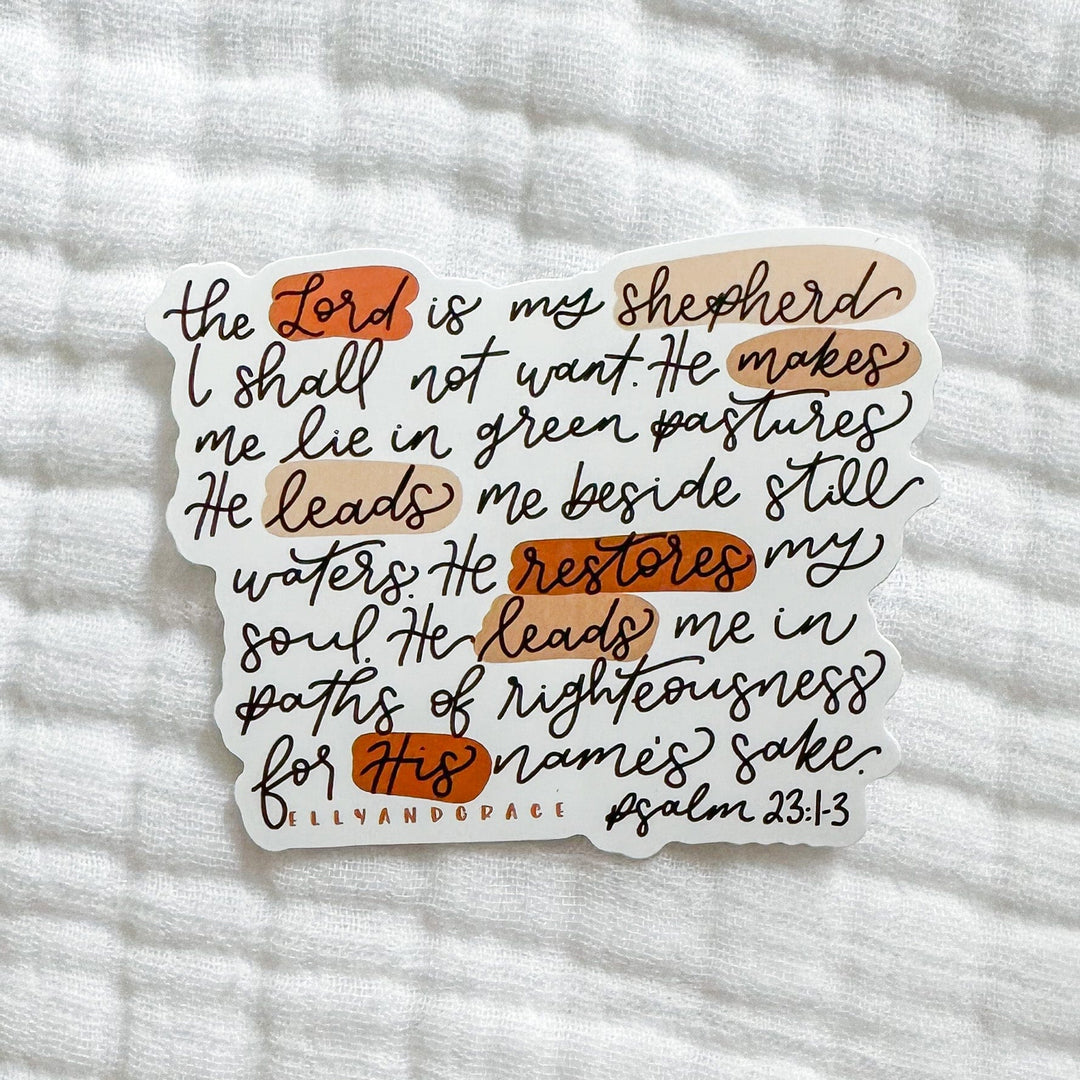 the Lord is my shepherd
I shall not want. He makes
me lie in green pastures
He leads me beside still
waters. He restores my
soul. He leads me in
paths of righteousness
for His name's sake.
ELLYANDGRACE
psalm 23:1-3